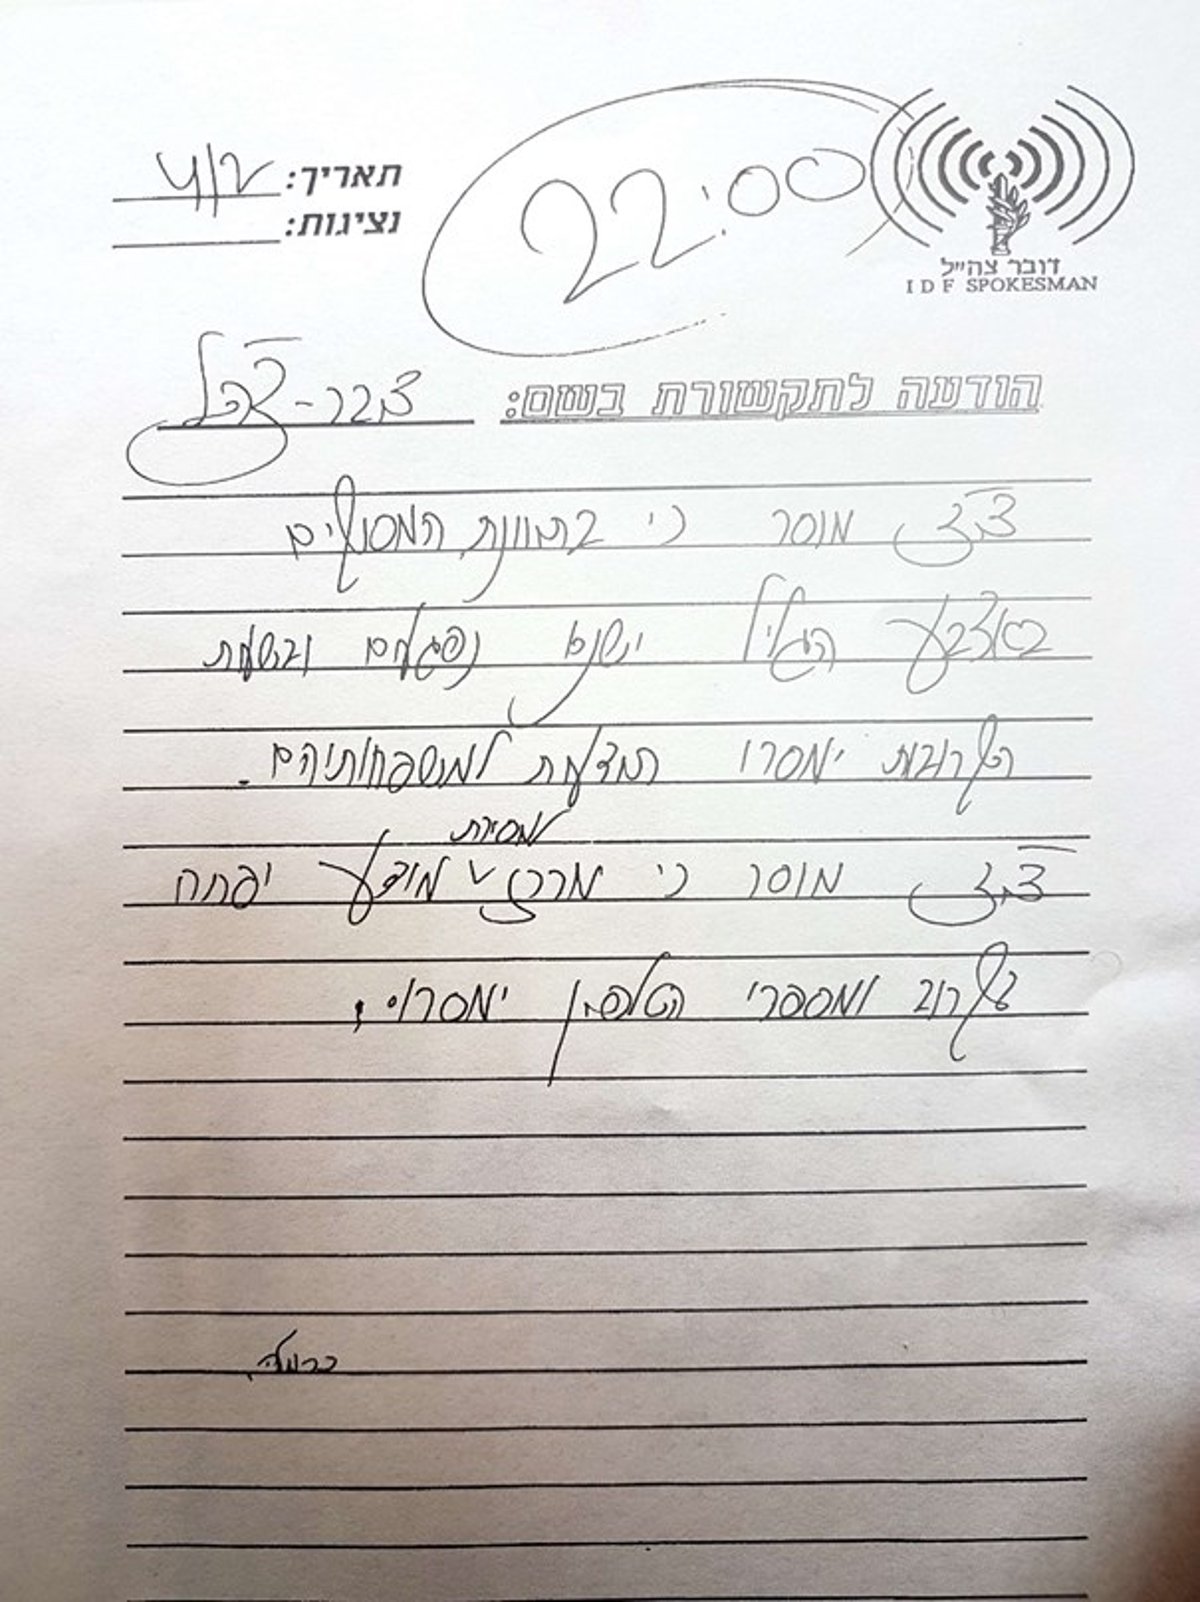 תאריך: 4/2
נציגות:
22:00
דובר צה"ל
IDF SPOKESMAN
הודעה לתקשורת בשם: דובר-צה"ל
דו"צ מוסר כי בתאונת המסוקים
באצבע הגליל ישנם נפגעים ובשעות
הקרובות ימסרו הודעות למשפחותיהם.
למסירת
דו"צ מוסר כי מרכז מידע יפתח
בקרוב ומספרי הטלפון ימסרו.